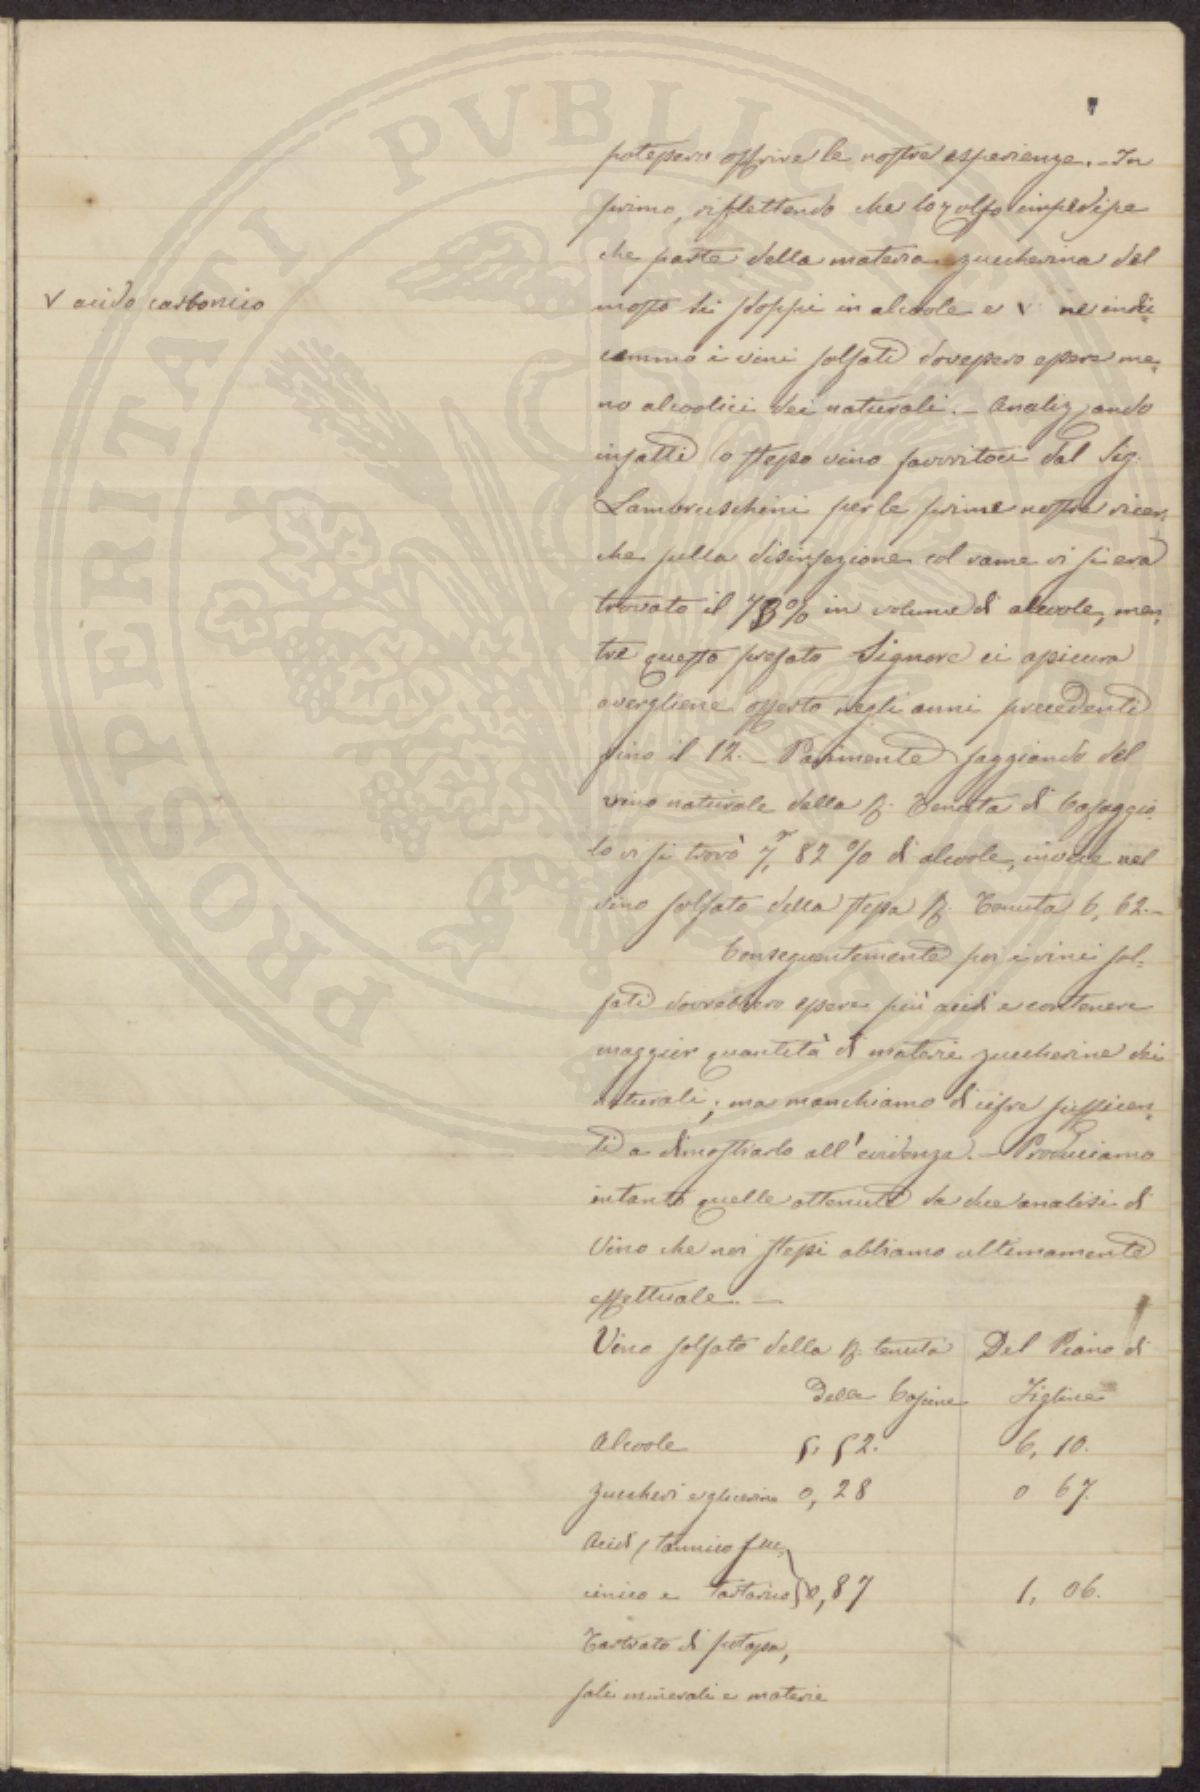 potessero offrire le nostre esperienze. - In
primo, riflettendo che lo zolfo impedisse
che parte della materia zuccherina del
V acido carbonico
mosto si sdoppi in alcoole e V ne indu-
cemmo i vini solfati dovessero essere me-
no alcoolici dei naturali. - Analizzando
infatti lo stesso vino favoritoci dal Sig.
Lambruschini per le prime nostre ricer-
che sulla disinfezione col rame vi si era
trovato il % in volume di alcoole, men-
tre questo prefato Signore ci assicura
avergliene offerto negli anni precedenti
fino il 12. - Parimente saggiando del
vino naturale della R. Tenuta di Cafaggio
lo vi si trovò 7, 82 % di alcoole, invece nel
vino solfato della stessa R. Tenuta 6, 62. -
Conseguentemente poi i vini sol-
fati dovrebbero essere più acidi e contenere
maggior quantità di materie zuccherine dei
naturali; ma manchiamo di cifre sufficen-
ti a dimostrarlo all'evidenza. - Produciamo
intanto quelle ottenute da due analisi di
Vino che noi stessi abbiamo ultimamente
effettuale. -
Vino solfato della R. tenuta Del Piano di
Delle Cascine Figline
Alcoole 5, 52. 6, 10.
Zuccheri e glicerina 0, 28 0 67.
Acidi (tannico suc-
cinico e tartarico) 0, 87 1, 06.
Tartrato di potassa,
sali minerali e materie
PROSPERITATI PVBLICAE